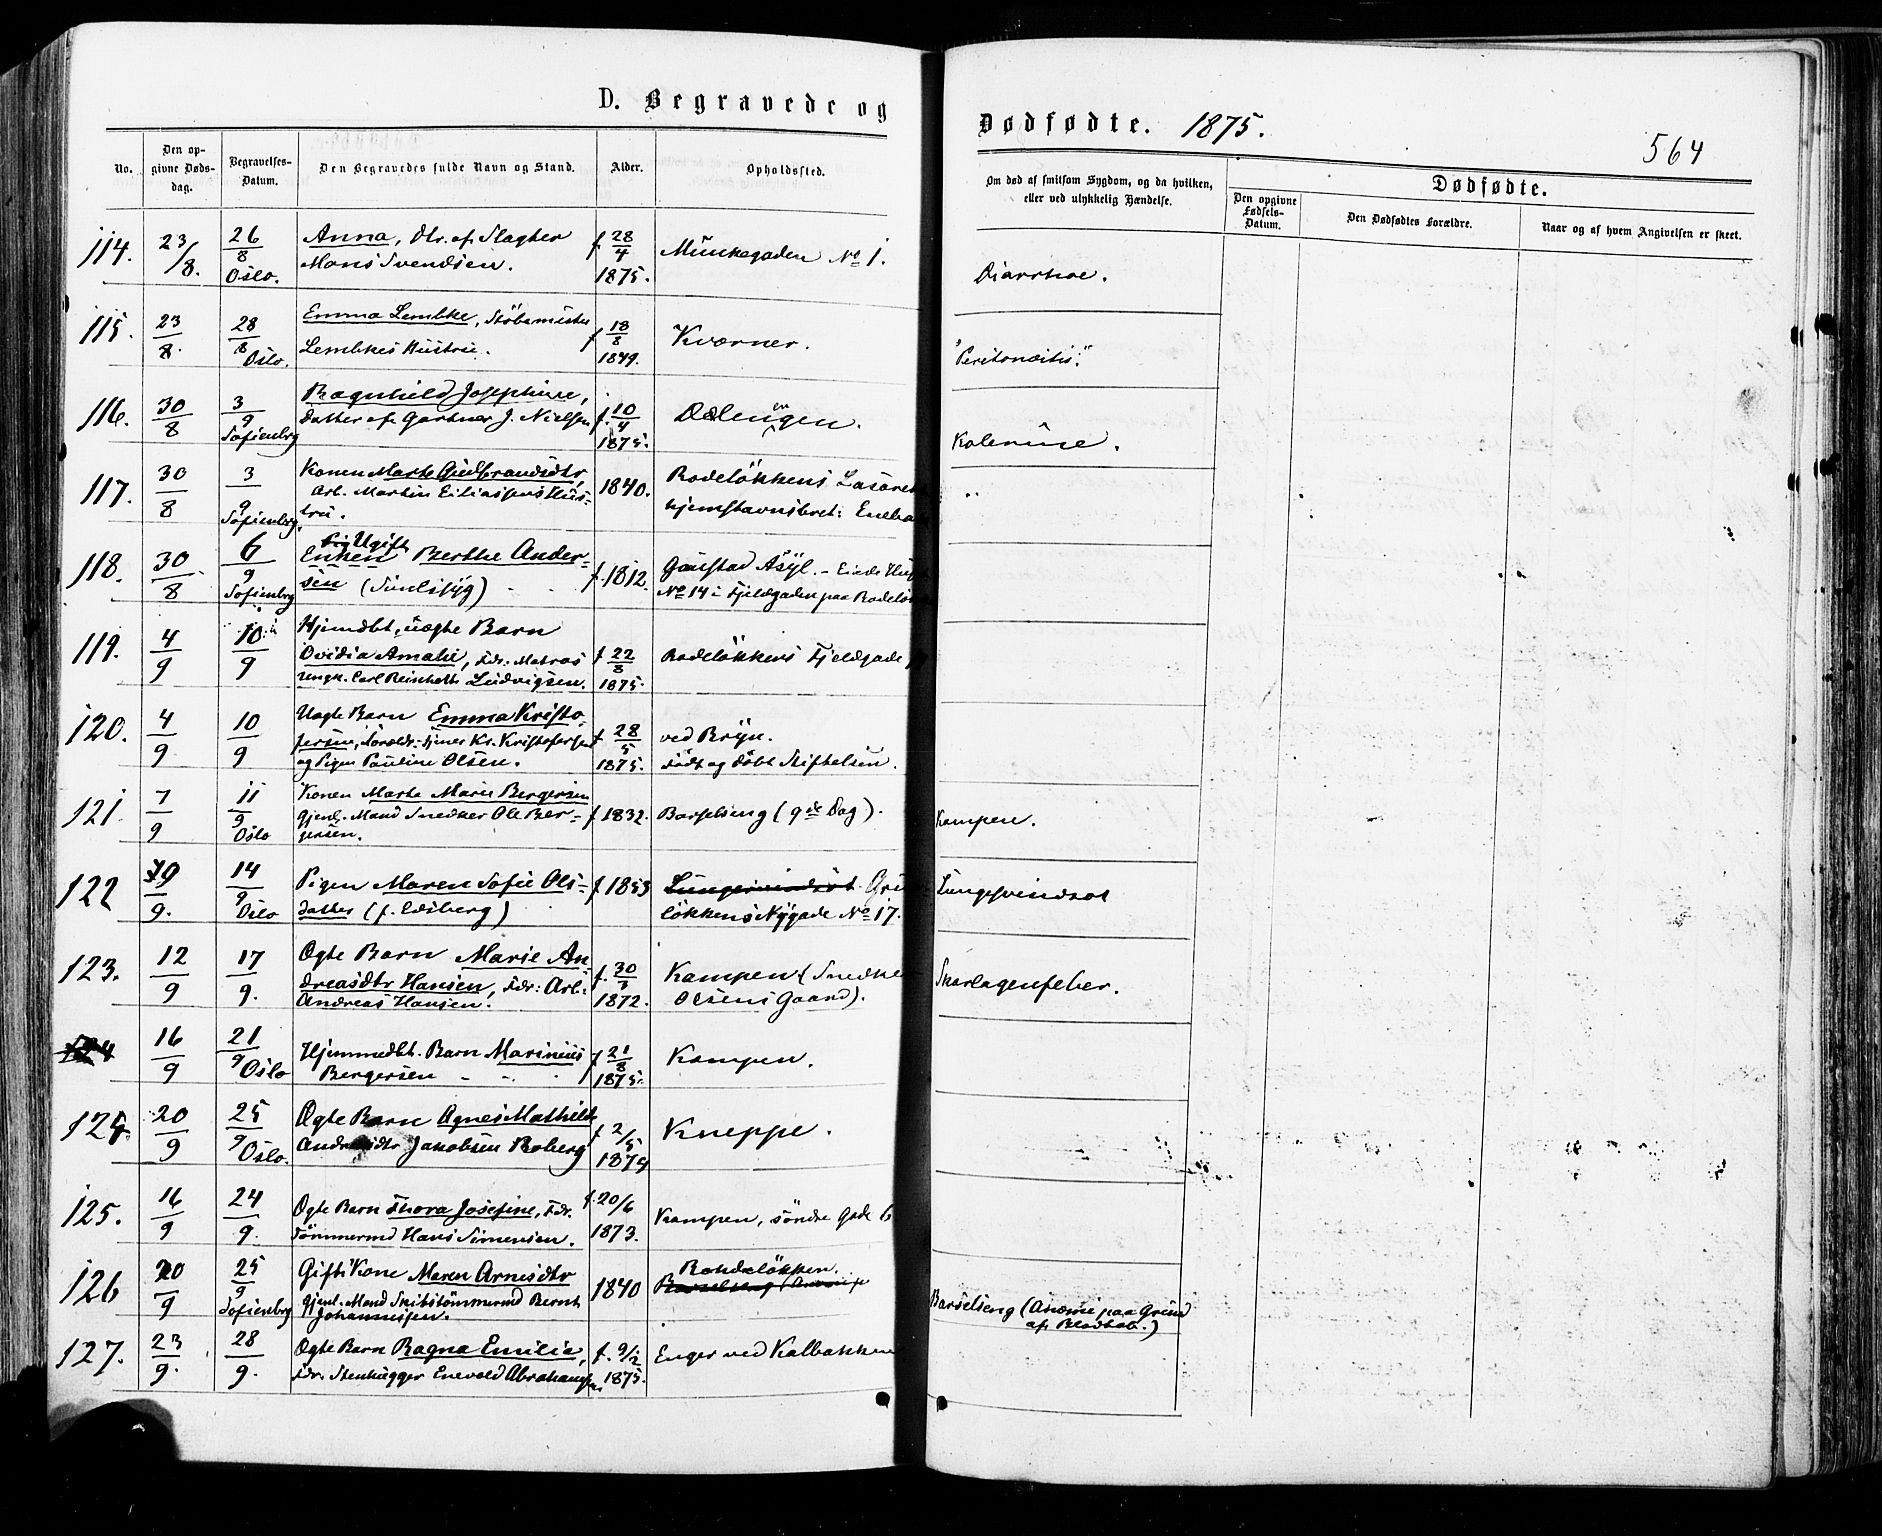 D. Begravede og
Dødfødte. 1875.
564
No.
Den opgivne Dødsdag.
Begravelses-Datum.
Den Begravedes fulde Navn og Stand.
Alder.
Opholdssted.
Om død af smitsom Sygdom, og da hvilken,
eller ved ulykkelig Hændelse.
Dødfødte.
Den opgivne Fødsels-Datum.
Den Dødfødtes Forældre.
Naar og af hvem Angivelsen er skeet.
114. 23/8. 26/8 Oslo. Anna, Dtr. af Slagter
Mons Svendsen. f. 28/4 1875. Munkegaden No 1. Diarrhoe.
115. 23/8. 28/8 Oslo. Emma Lembke, Støbemester
Lembkes Hustru. f 18/8 1849. Kværner. "Peritonæitis."
116. 30/8 3/9 Sofienbrg Ragnhild Josephine,
Datter af Gartner J. Nielsen f. 10/4 1875. Dælenengen. Kolerine.
117. 30/8 3/9 Sofienbrg. Konen Marte Gudbrandsdtr,
Arb. Martin Eiliassens Hus-
tru. 1840. Rodeløkkens Lasaret
hjemstavnsbret: Eneba
118. 30/8 6/9 Sofienbrg Pig Ugift
Enken Berthe Ander-
sen (Sindssyg) f. 1812. Gaustad Asyl. - Eiede Hus
No 14 i Fjeldgaden paa Rodeløk
119. 4/9 10/9 Hjemdbt. uægte Barn
Ovidia Amalie, Fdr: Matros
Carl Reinholt Ludvigsen. f 22/8 1875. Rodeløkkens Fjeldgade
120. 4/9 10/9 Uægte Barn Emma Kristo-
fersen, Foræld: Tjener Kr. Kristofersen
og Pigen Pauline Olsen. f. 28/5 1875. ved Bryn.
Født og døbt Stiftelsen.
121. 7/9 11/9 Oslo Konen Marte Marie Bergersen
Gjenl. Mand Snedker Ole Ber-
gersen. f 1832. Barselseng (9de Dag). Kampen.
122 9/9. 14/9 Oslo Pigen Maren Sofie Ols-
datter (f. Edsberg) f 1853 Lungesvindsot Grün
løkkens Nygade No 17. Lungesvindsot
123. 12/9 17/9. Ægte Barn Marie An
dreasdtr Hansen, Fdr: Arb.
Andreas Hansen. f. 30/ 1872. Kampen (Snedke
Olsens Gaard). Skarlagensfeber.
124 16/9 21/9 Oslo Hjemmedbt. Barn Marinius
Bergersen f 21/8 1875. Kampen.
124. 20/9 25/9 Oslo. Ægte Barn Agnes Mathilde
Jakobsen Roberg f 2/5 1874 Kneppe.
125. 16/9 24/9. Ægte Barn Thora Josefine, Fdr.
Tømmermd Hans Simensen. f. 20/6 1873. Kampen, søndre Gade 6
126 20/9 25/9 Sofienbrg Gift Kone Maren Arnesdtr
Gjenl. Mand Skibstømmermd Bernt
Johannessen. 1840 Rodeløkken.
Barselseng (Anæmie paa Grund
af Blodtab.)
127. 23/9. 28/9. Ægte Barn Ragna Emilie,
Fdr. Stenhugger Enevold Abrahamsen f. 9/2 1875. Enger ved Kalbakken